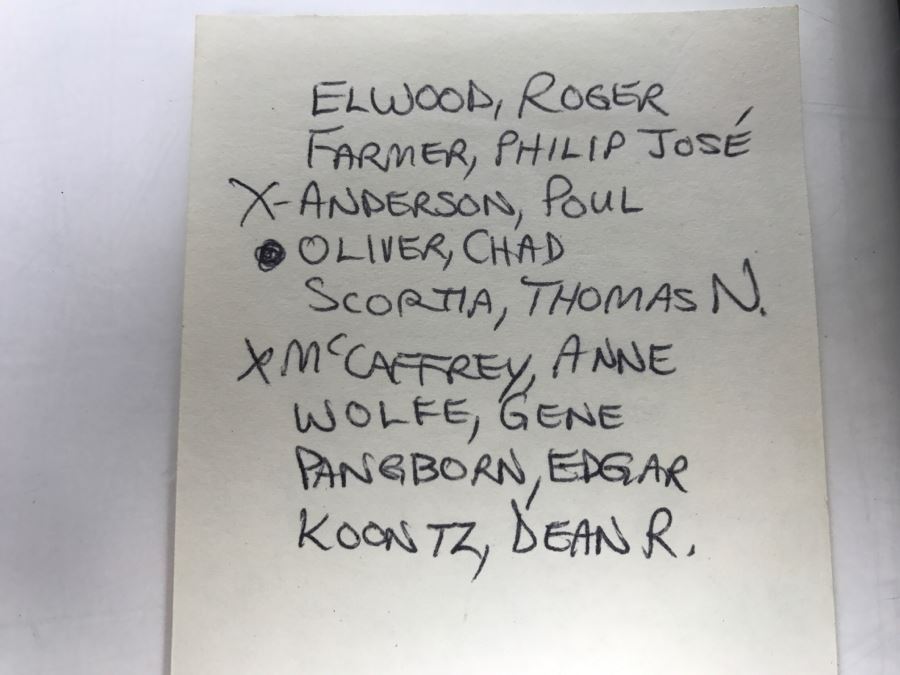 ELWOOD, ROGER
FARMER, PHILIP JOSÉ
X-ANDERSON, POUL
● OLIVER, CHAD
SCORTIA, THOMAS N.
X McCAFFREY, ANNE
WOLFE, GENE
PANGBORN, EDGAR
KOONTZ, DEAN R.